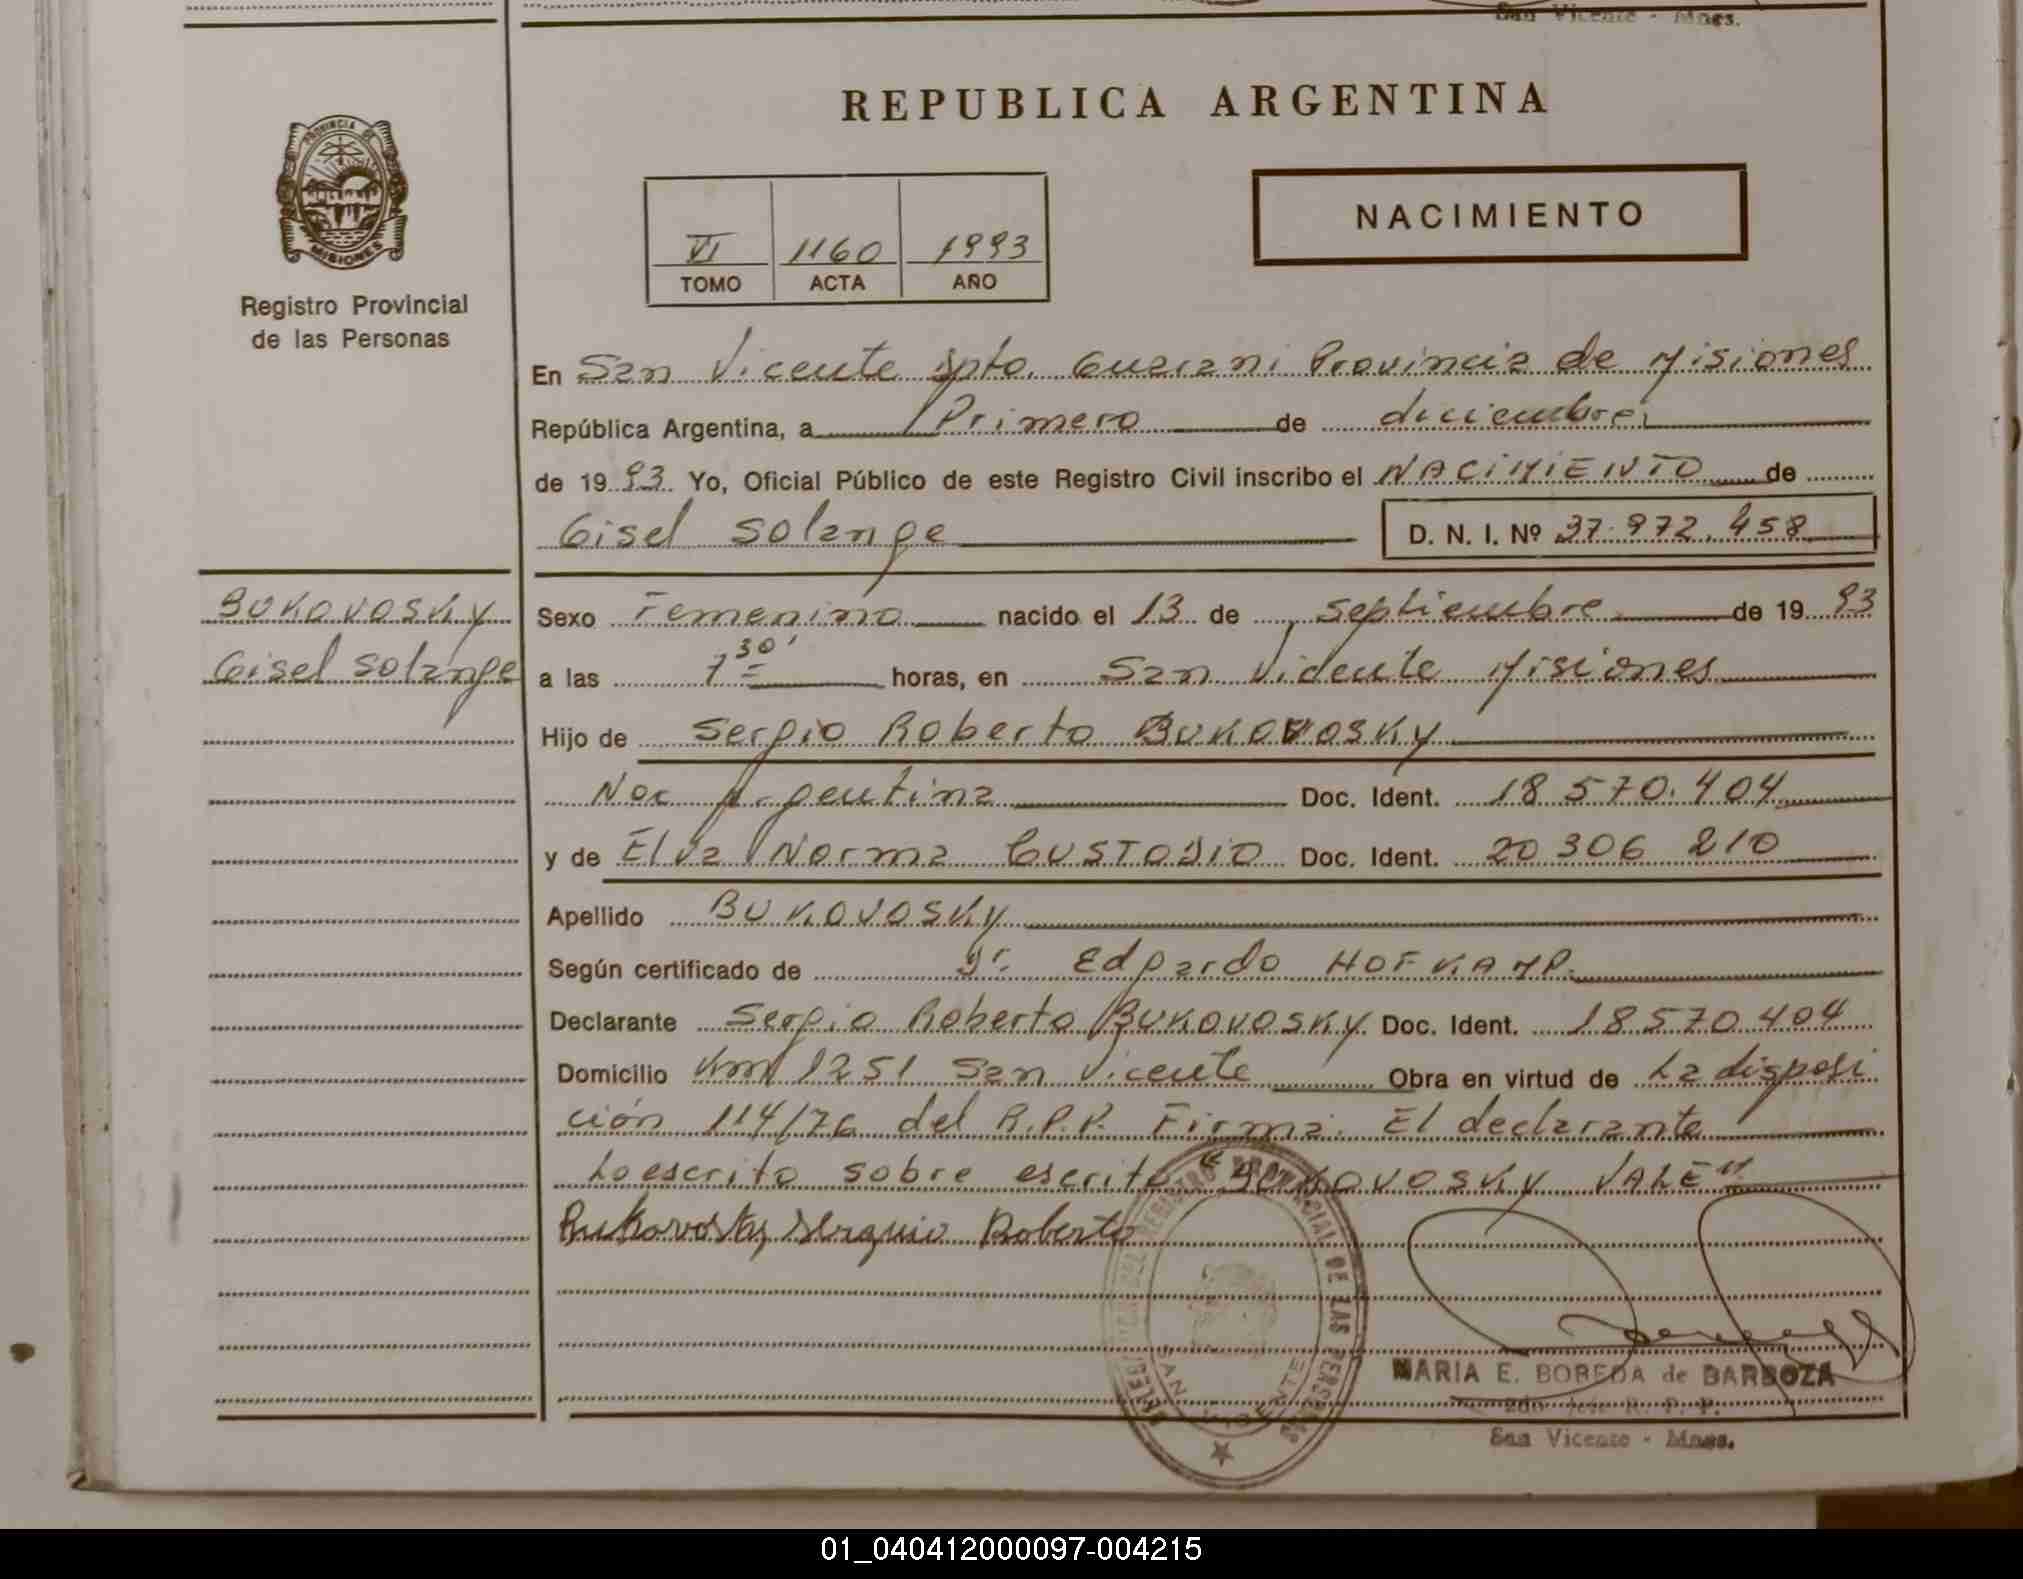 San Vicente - Mnes.
REPUBLICA ARGENTINA
PROVINCIA DE
MISIONES
Registro Provincial
de las Personas
VI 1160 1993
TOMO ACTA AÑO
NACIMIENTO
En San Vicente Dpto. Guarani Provincia de Misiones
República Argentina, a Primero de diciembre
de 1993 Yo, Oficial Público de este Registro Civil inscribo el NACIMIENTO de
Gisel Solange D. N. I. Nº 37.972.458
BUKOVOSKY
Gisel Solange
Sexo Femenino nacido el 13 de septiembre de 1993
a las 7 30' horas, en San Vicente Misiones
Hijo de Sergio Roberto BUKOVOSKY
Nac Argentina Doc. Ident. 18.570.404
y de Elva Norma CUSTODIO Doc. Ident. 20 306 210
Apellido BUKOVOSKY
Según certificado de Dr. Edgardo HOFKAMP.
Declarante Sergio Roberto BUKOVOSKY Doc. Ident. 18570404
Domicilio Km 1251 San Vicente Obra en virtud de La disposi
ción 114/76 del R.P.P. Firma: El declarante
Lo escrito sobre escrito "BUKOVOSKY VALE"
Bukovosky Serguio Roberto
REGISTRO PROVINCIAL DE LAS PERSONAS
SAN VICENTE
MARIA E. BOREDA de BARBOZA
2do Jefe R. P. P.
San Vicente - Mnes.
01_040412000097-004215